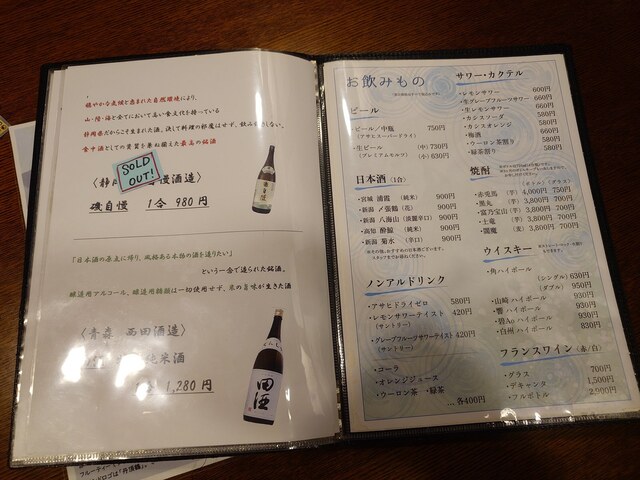 穏やかな気候と恵まれた自然環境により、
山・陸・海と全てにおいて高い食文化を持っている
静岡県だからこそ生まれた酒。決して料理の邪魔はせず、飲み空きしない。
食中酒としての資質を兼ね備えた最高の銘酒
SOLD OUT!
磯自慢 1合 980円
「日本酒の原点に帰り、風格ある本物の酒を造りたい」
という一念で造られた銘酒。
醸造用アルコール、醸造用糖類は一切使用せず、米の旨味が生きた酒
〈青森 西田酒造〉
純米酒
1,280円
田酒
お飲みもの
ビール
・ビール/中瓶 750円
(アサヒスーパードライ)
・生ビール (中)730円
(プレミアムモルツ) (小)630円
日本酒(1合)
・宮城 浦霞 (純米) 900円
・新潟 〆張鶴 (花) 900円
・新潟 八海山 (淡麗辛口) 900円
・高知 酔鯨 (純米) 900円
・新潟 菊水 (辛口) 900円
ノンアルドリンク
・アサヒドライゼロ 580円
・レモンサワーテイスト 420円
(サントリー)
・グレープフルーツサワーテイスト 420円
(サントリー)
・コーラ
・オレンジジュース
・ウーロン茶 ・緑茶
… 各400円
サワー・カクテル
・レモンサワー 600円
・生グレープフルーツサワー 660円
・生レモンサワー 660円
・カシスソーダ 580円
・カシスオレンジ 580円
・梅酒 660円
・ウーロン茶割り 580円
・緑茶割り 580円
焼酎
(ボトル) (グラス)
・赤兎馬 (芋) 4,000円 750円
・黒丸 (芋) 3,800円 700円
・富乃宝山 (芋) 3,800円 700円
・土竜 (芋) 3,800円 700円
・閻魔 (麦) 3,800円 700円
ウイスキー
・角ハイボール
(シングル) 630円
(ダブル) 950円
・山崎 ハイボール 930円
・響 ハイボール 930円
・碧Ao ハイボール 930円
・白州 ハイボール 830円
フランスワイン (赤/白)
・グラス 700円
・デキャンタ 1,500円
・フルボトル 2,900円